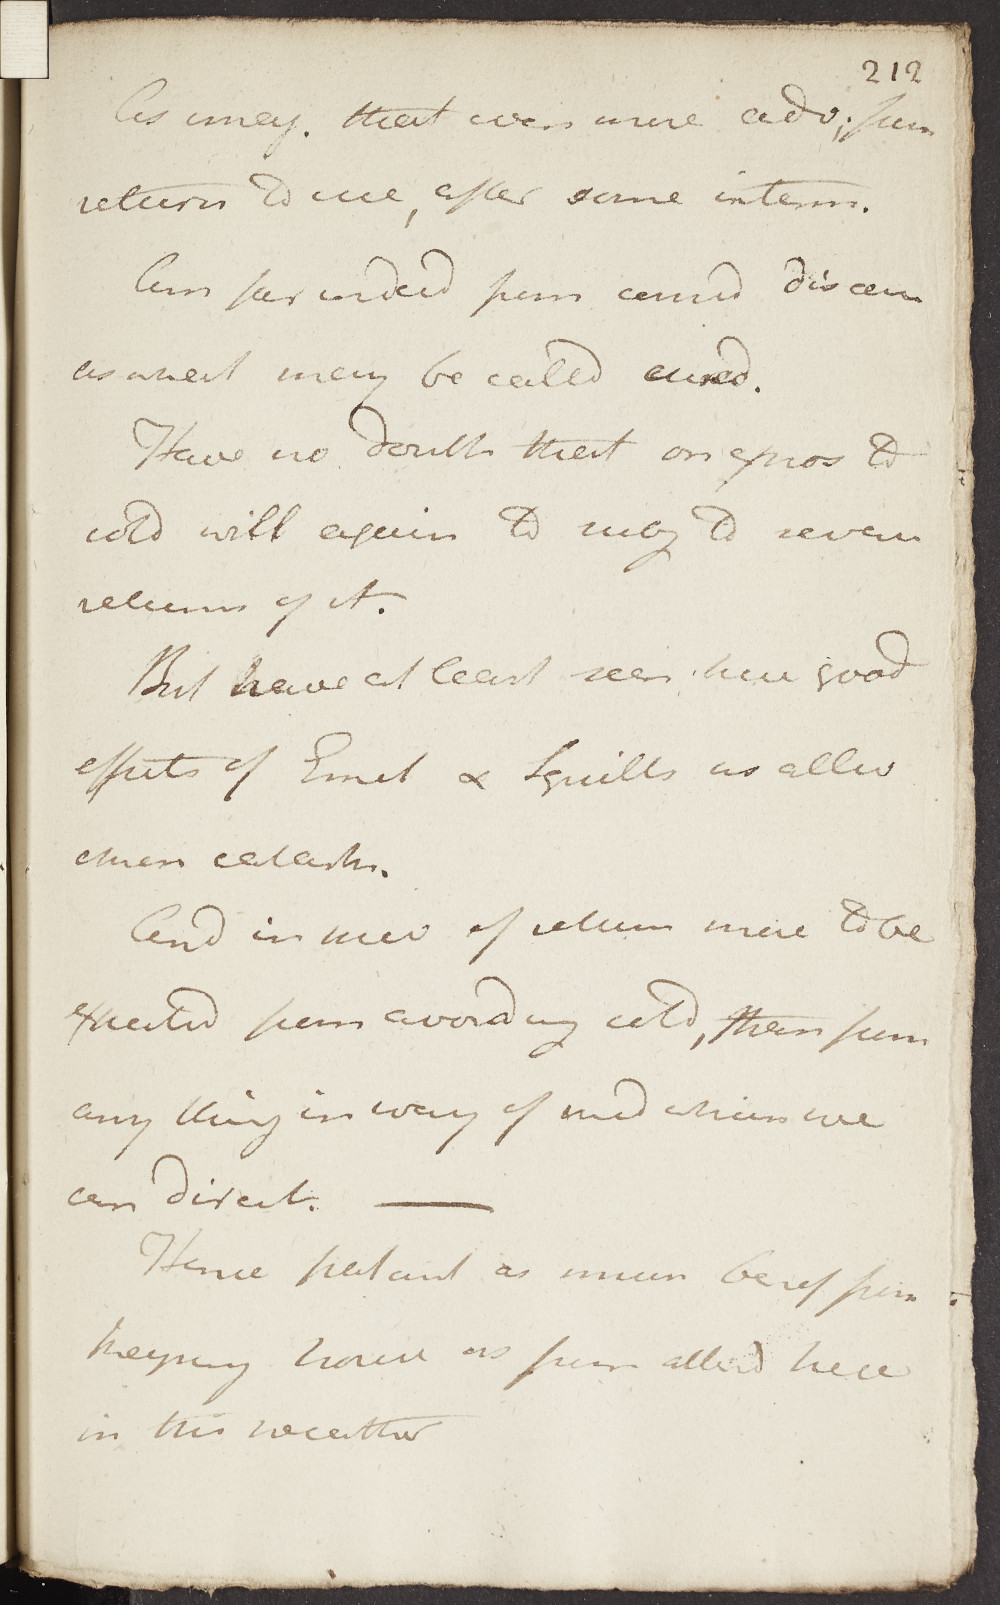 212
As imag. that even more adv; from
return to me, after some interm.
Am far indeed from consid disease
as what may be called cured.
Have no doubt that on expos to
cold will again to subj to severe
returns of it.
But have at least seen here good
effects of Emet & Squills as allev
chron catarh.
And in mev of return more to be
expected from avoiding cold, than from
any thing in way of med which we
can direct. —
Hence patient as much benef from
keeping house as from attend here
in this weather